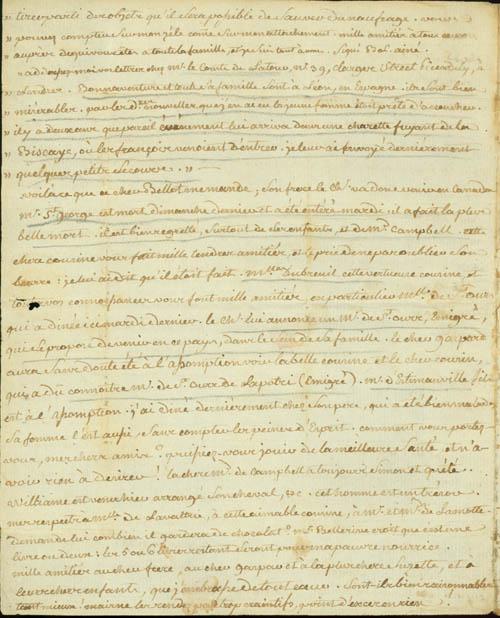 " tirer parti des objets qu'il sera possible de sauver du naufrage. vous
" pouvez compter sur mon zele come sur mon attachement. mille amitiés à tous ceux
" auprès de qui vous etes à toute la famille, et je suis tout à vous. Signé Bel. aîné
" adressez-moi vos lettres chez Mr. le Comte du Latour, No 39, Clarges Street Picadilly, à
" Londres. Bonnaventure et toute sa famille sont à Léon, en Espagne. ils sont bien
" miserables. par les dernieres nouvelles que j'en ai eu la jeune femme étoit prête d'accoucher.
" il y a deux ans que pareil évènement lui arriva dans une charette fuyant de la
" Biscaye, où les françois venoient d'entrer. je leur ai envoyé dernièrement
" quelques petits secours. "
voila ce que ce cher Bellot me mande, son frere le Chr. va donc vivre en Canada
Mr. St. George est mort dimanche dernier et a été enteré mardi. il a fait la plus
belle mort. il est bien regretté, surtout de ses enfants et de Me. Campbell. cette
chere cousine vous fait mille tendres amitiés, et te prie de ne pas oublier son
beurre: je lui ai dit qu'il étoit fait. Dubreuil cette vertueuse cousine, et
toutes vos connoissances vous font mille amitiés, en particulier Mlle. de St. Ours
qui a dinée ici mardi dernier. le Chr. lui annonce un Mr. de St. Ours, Emigré,
qui se propose de venir en ce pays, dans le sein de sa famille. le cher gaspard
aura sans doute été à l'assomption voir la belle cousine et le cher cousin,
qui a dû connoître Mr. de St. Ours de Lapoterie (Emigré). Mr. d'Estimauville fils
est à l'assomption. j'ai diné dernièrement chez son pere, qui a été bien malade
sa femme l'est aussi, sans compter les peines d'Esprit. comment vous portez
vous, mes chers amis? puissiez-vous jouir de la meilleure santé et n'a-
voir rien à desirer! la chere Me. de Campbell a toujours Simon et sa tête..
Williams est venu hier arranger son cheval, &c. cet homme est un trésor.
mes respects à Mlle. de Lavaltrie, à cette aimable cousine, à Mr. et Me. de Lamothe
demande lui combien il gardera de chocolat? Me. Pellerine croit que c'est une
livre ou deux. les 5 ou 6 livres restant seront pour ma pauvre nourrice
mille amitiés au cher frere, au cher gaspard et à la plus chere Suzette, et à
leurs chers enfants, que j'embrasse de tout coeur. sont-ils bien raisonnables
tant mieux! mais ne les rendez pas trop craintifs, point d'exces en rien